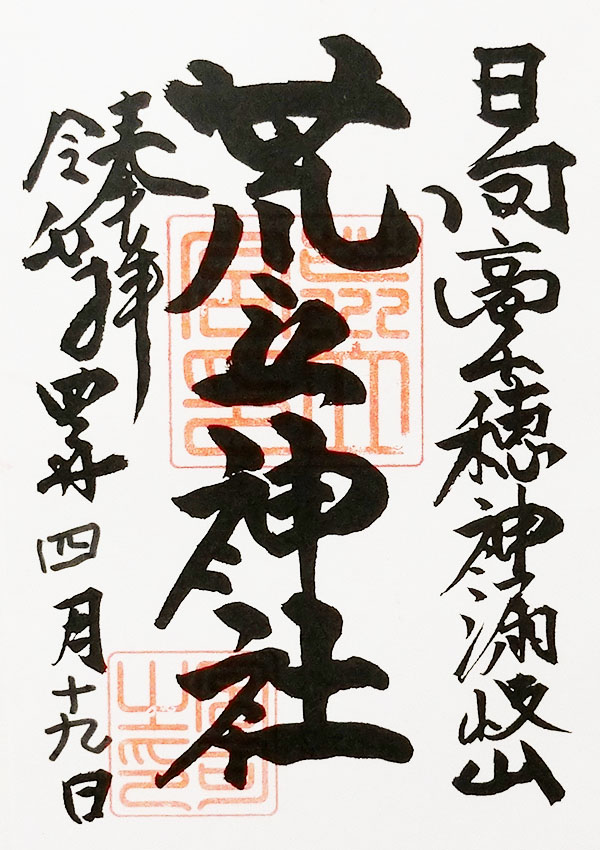 日向高千穂神漏岐山
荒立神社
奉拝
令和四年四月十九日
宮司之印